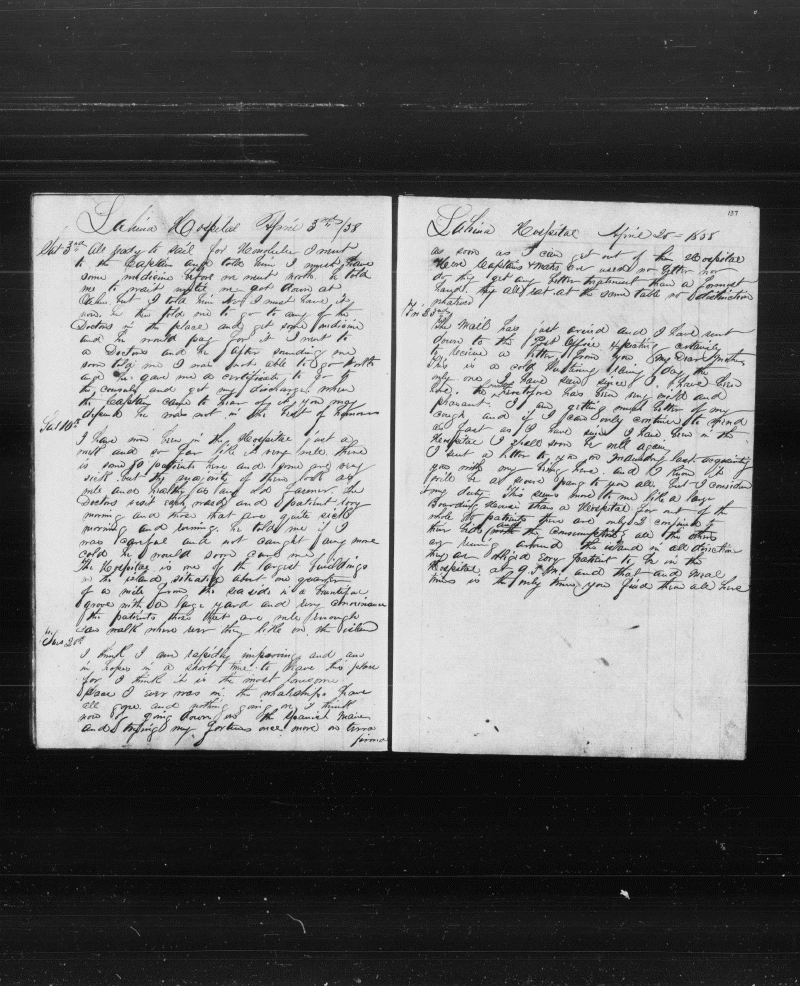 Lahina Hospital April 3rd /58
Sat 3rd All ready to sail for Honolulu I went
to the Captain and told him I must have
some medicine before we went north. he told
me to wait until we got down at
Oahu but I told him No I must have it
now. So he told me to go to any of the
Doctors in the place and get some medicine
and he would pay for it I went to
a Doctors and he after sounding me
soon told me I was not able to go North
and he gave me a certificate to go to
the consul and get my discharge, when
the Captain came to hear of it, you may
depend he was not in the best of humours
Sat 10th
I have now been in the Hospital just a
week and so far like it very well. there
is some patients here and some are very
sick but the majority of them look as
well and healthy as any old farmer. the
Doctors visit each ward and patient every
morning and those that are quite sick
morning and evening. he told me if I
was careful and not caught any more
cold he would soon cure me
The Hospital is one of the largest buildings
on the island, situated about one quarter
of a mile from the sea side in a beautiful
grove with a large yard and every convenience
the patients those that are well enough
can walk where ever they like on the island
Tues 20th
I think I am rapidly improving and am
in hopes in a short time to leave this place
for I think it is the most lonesome
place I ever was in the whaleships have
all gone and nothing going on, I think
now of going down on the Spanish Main
and trying my fortunes once more on terra
firma
137
Lahina Hospital April 20th 1858
as soon as I can get out of this Hospital
Here Captains & mates are used no better nor
do they get any better treatment than a foremast
hand. they all eat at the same table no distinction
whatever
Fri 23rd
The Mail has just arrived and I have sent
down to the Post Office expecting certainly
to receive a letter from you My Dear Mother
This is a cold blustering rainy day the
only one I have seen since I have been
here. the weather heretofore has been very mild and
pleasant, I am getting much better of my
cough and if I can only continue to mend
as fast as I have since I have been in the
Hospital I shall soon be well again
I sent a letter to you on Monday last acquainting
you with my being here. and I know it
will be a severe pang to you all. but I consider
my duty. This seems more to me like a large
Boarding House than a Hospital for out of the
whole patients there are only 2 confined to
their beds and with the Consumption, all the others
are running around the island in all directions
they are obliged every patient to be in the
Hospital at 9 P.M. and that and meal
times is the only times you find them all here